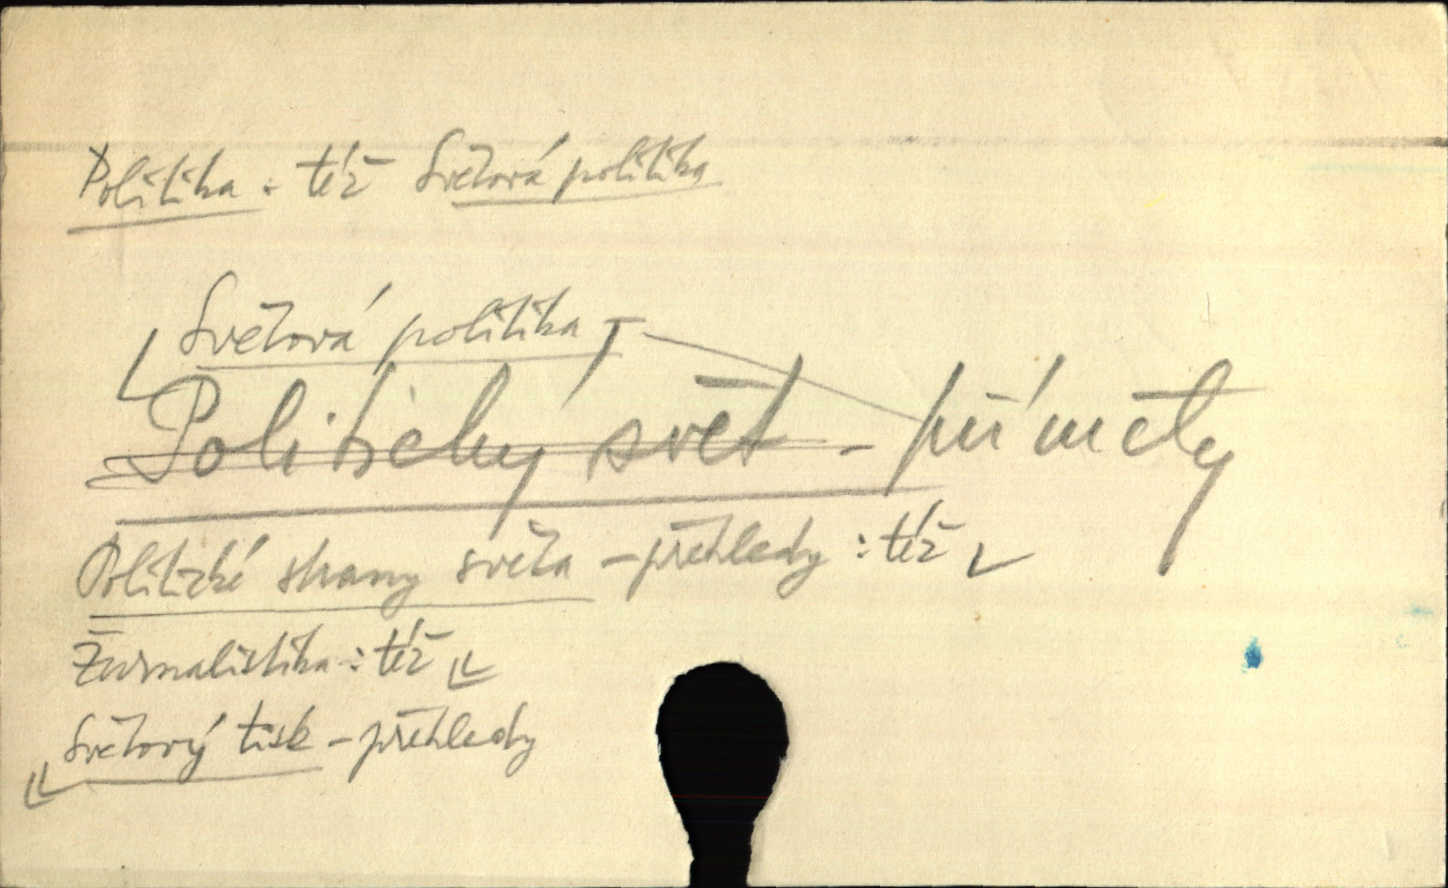 Politika : též Světová politika
Světová politika
Politický svět - příměty
Politické strany světa - přehledy : též
Žurnalistika : též
Světový tisk - přehledy